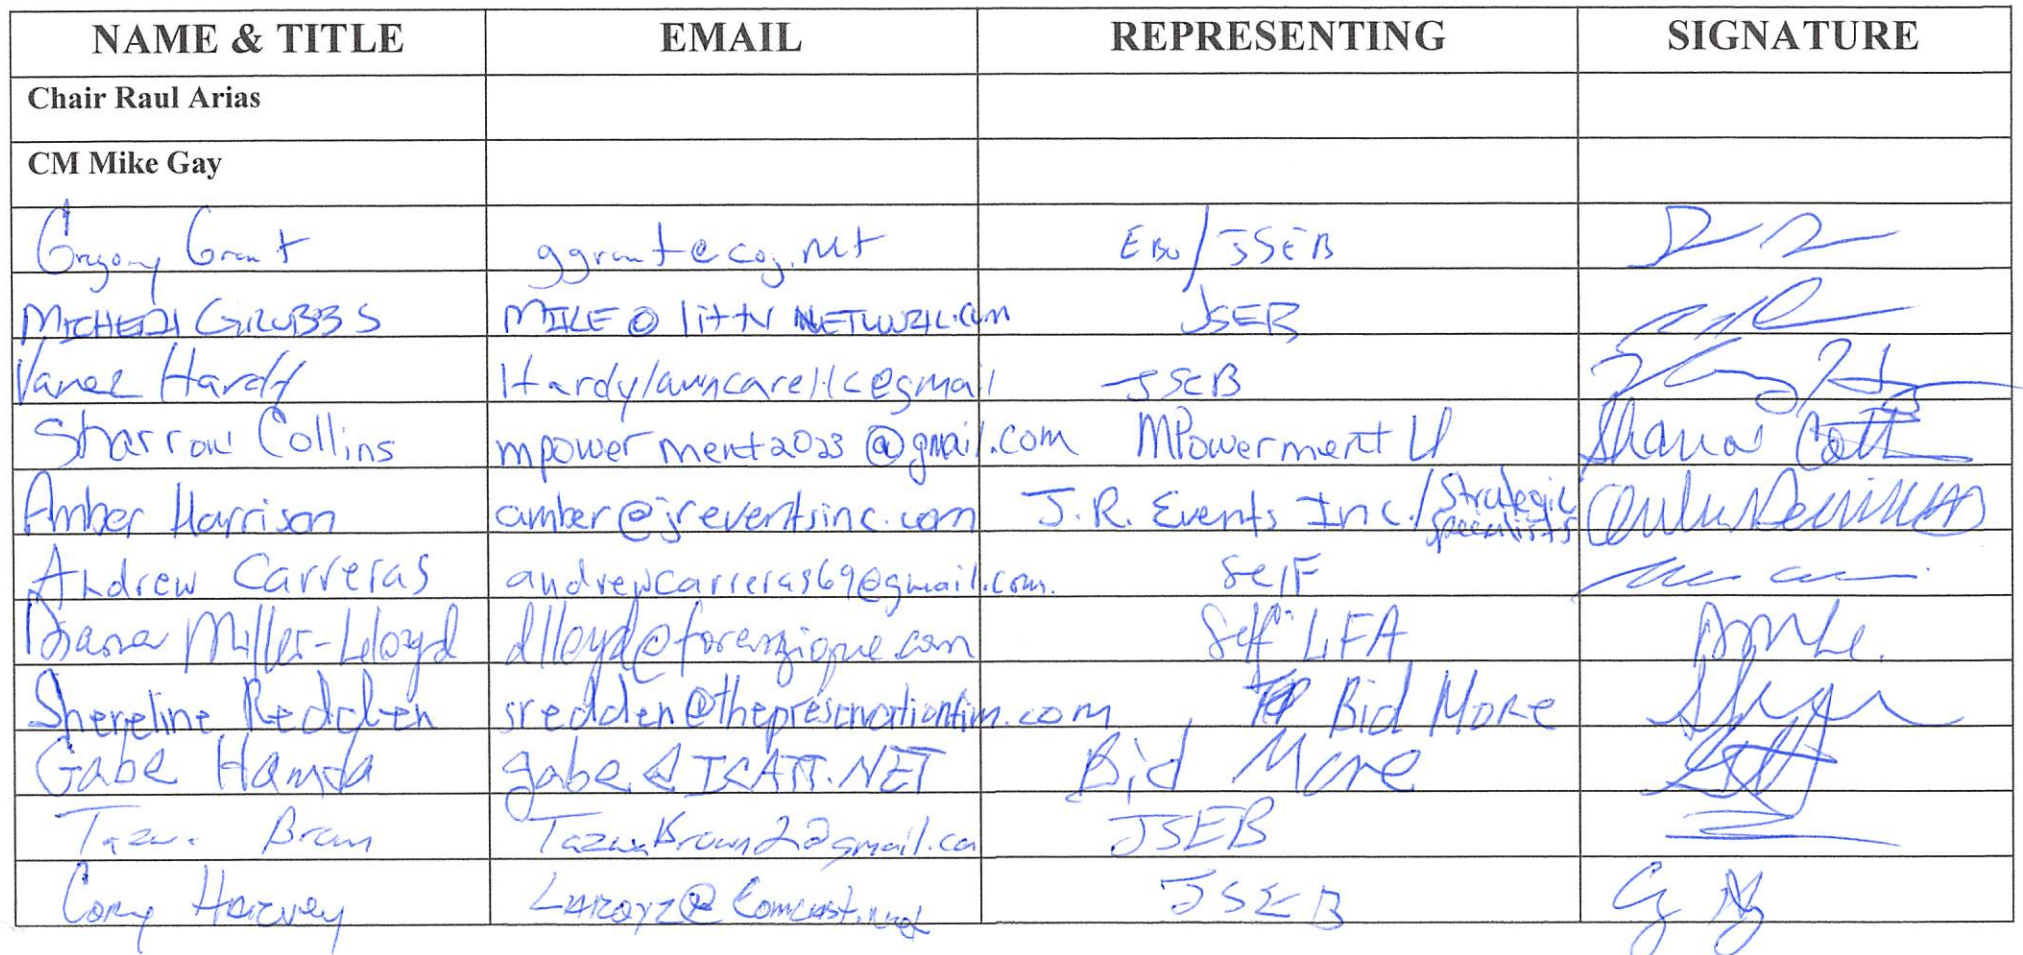 NAME & TITLE EMAIL REPRESENTING SIGNATURE
Chair Raul Arias
CM Mike Gay
Gregory Grant ggrant@coj.net EBO/JSEB
GRUBBS JSEB
Hardy Hardylawncarellc@gmail JSEB
Sharron Collins mpowerment2023@gmail.com MPowerment U
Amber Harrison amber@jreventsinc.com J.R. Events Inc./Strategic Specialists
Andrew Carreras andrewcarreras69@gmail.com. Self
Diana Miller-Lloyd dlloyd@forenzique.com Self LFA
Shereline Redden sredden@thepreservationfirm.com Bid More
Gabe Hamda gabe@ICATT.NET Bid More
Brown JSEB
Cory Harvey Laroyz@Comcast.net JSEB